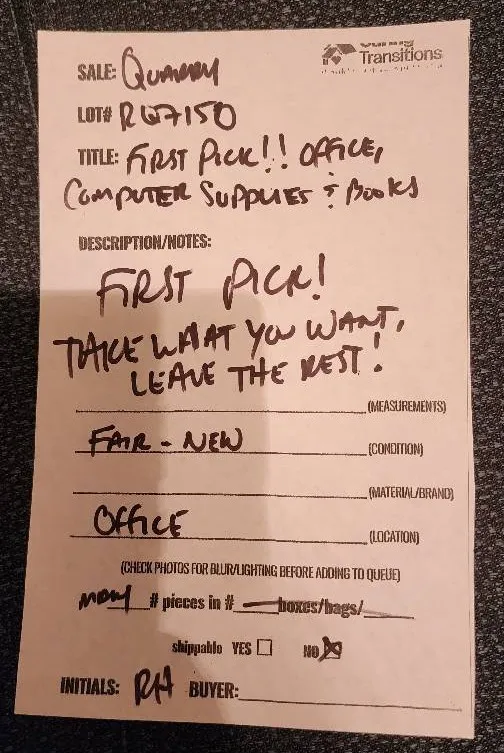 Caring
Transitions
SALE: QUARRY
LOT# RW7150
TITLE: FIRST PICK!! OFFICE,
COMPUTER SUPPLIES & BOOKS
DESCRIPTION/NOTES:
FIRST PICK!
TAKE WHAT YOU WANT,
LEAVE THE REST!
(MEASUREMENTS)
FAIR - NEW (CONDITION)
(MATERIAL/BRAND)
OFFICE (LOCATION)
(CHECK PHOTOS FOR BLUR/LIGHTING BEFORE ADDING TO QUEUE)
many # pieces in # boxes/bags/
shippable YES NO
INITIALS: RH BUYER: